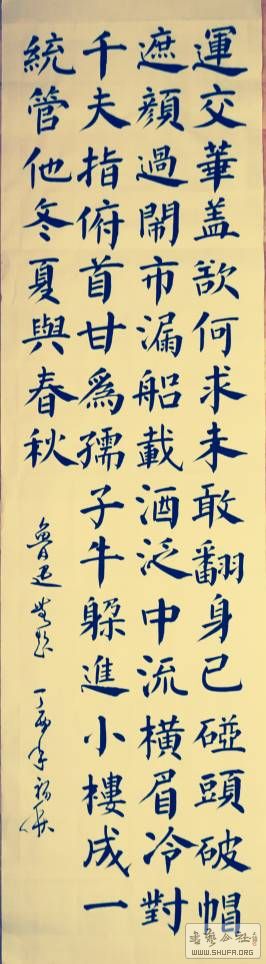 運交華盖欲何求未敢翻身已碰頭破帽
遮顔過閙市漏船載酒泛中流橫眉冷對
千夫指俯首甘爲孺子牛躲進小樓成一
統管他冬夏與春秋
魯迅
丁酉年初秋
書藝公社
WWW.SHUFA.ORG